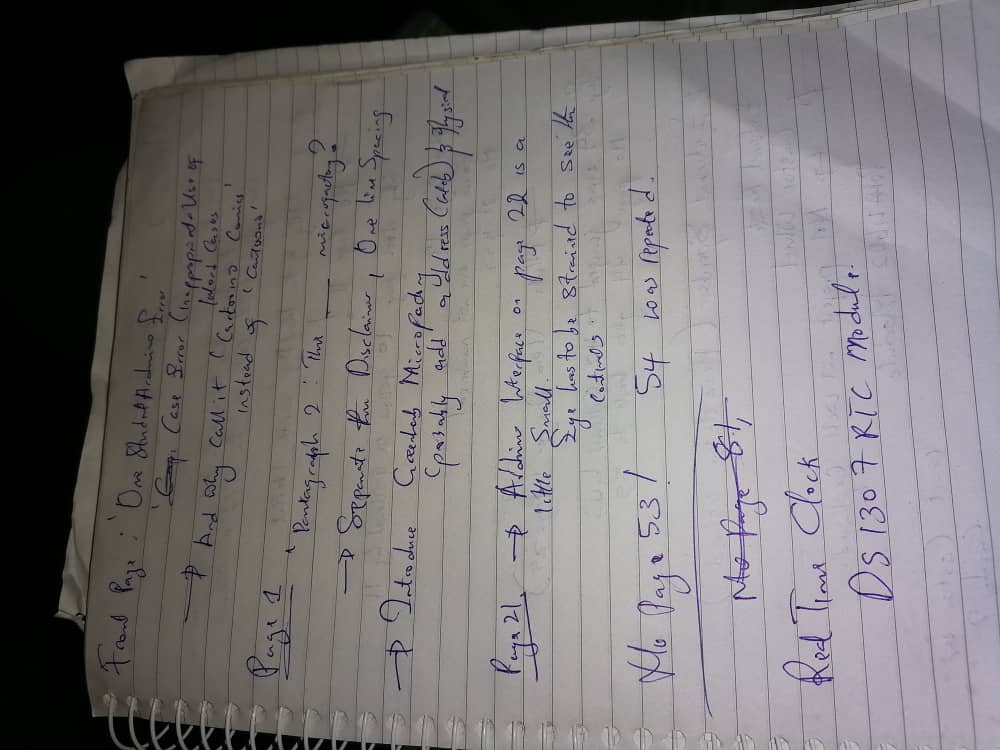 Front Page : 'One Student Arduino Error'
Case Error (Inappropriate Use of
Word Cases
→ And why call it 'Cartoonio Comics'
instead of 'Cartoons'
Page 1 • Paragraph 2 : This — micropackng?
→ Separate the Disclaimer, One line Spacing
→ Introduce Micropackng
(probably add address (Web) & Physical
Page 21 → Arduino Interface on page 22 is a
little Small.
Eye has to be strained to see the
contents
No Page 53 / 54 was repeated.
No Page 81,
Real Time Clock
DS 1307 RTC Module.